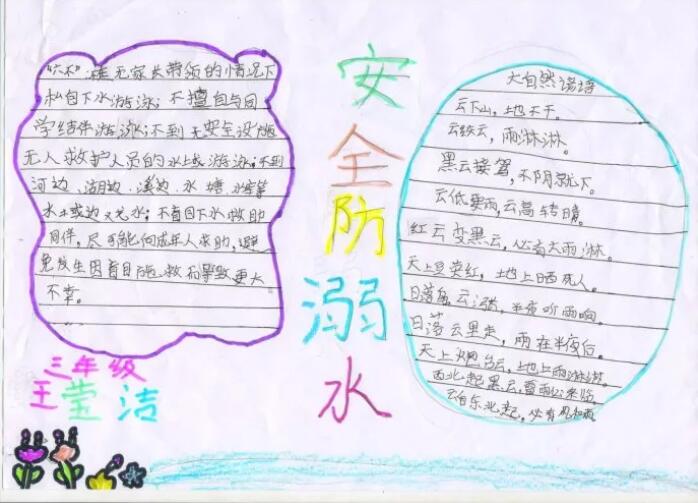 "六不":在无家长带领的情况下
私自下水游泳;不擅自与同
学结伴游泳;不到无安全设施
无人救护人员的水域游泳;不到
河边、湖边、溪边、水塘、水库等
水土或边义光水;不盲目下水救助
同伴,尽可能向成年人求助,避
免发生因盲目施救而导致更大
不幸。
三年级
王莹洁
安
全
防
溺
水
大自然谚语
云下山,地不干。
云绞云,雨淋淋。
黑云接驾,不阴就下。
云低要雨,云高转晴。
红云变黑云,必有大雨淋。
天上豆荚红,地上晒死人。
日落云涨,半夜听雨响。
日落云里走,雨在半夜后。
天上云,地上雨淋淋。
西北起黑云,雷雨必来临
云自东北起,必有风和雨